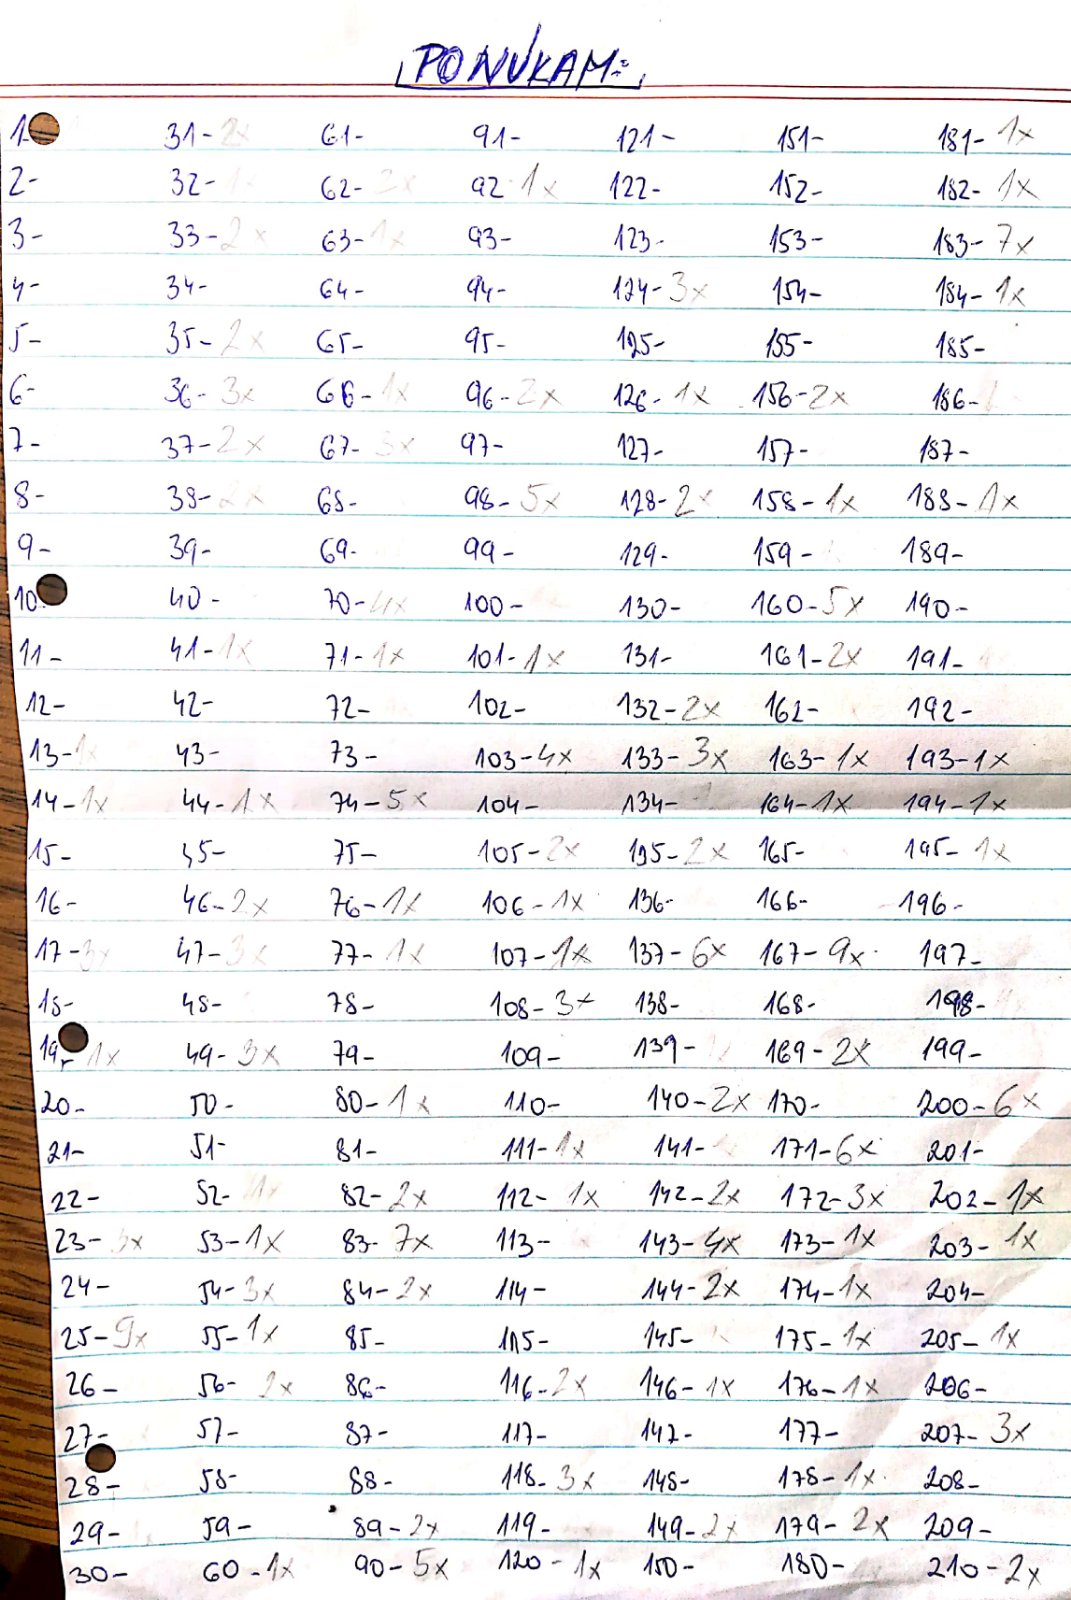 PONÚKAM:
1 31-2x 61- 91- 121- 151- 181-1x
2- 32-1x 62-2x 92-1x 122- 152- 182-1x
3- 33-2x 63-1x 93- 123- 153- 183-7x
4- 34- 64- 94- 124-3x 154- 184-1x
5- 35-2x 65- 95- 125- 155- 185-
6- 36-3x 66-1x 96-2x 126-1x 156-2x 186-
7- 37-2x 67-3x 97- 127- 157- 187-
8- 38-2x 68- 98-5x 128-2x 158-1x 188-1x
9- 39- 69- 99- 129- 159- 189-
10 40- 70-4x 100- 130- 160-5x 190-
11- 41-1x 71-1x 101-1x 131- 161-2x 191-
12- 42- 72- 102- 132-2x 162- 192-
13-1x 43- 73- 103-4x 133-3x 163-1x 193-1x
14-1x 44-1x 74-5x 104- 134- 164-1x 194-1x
15- 45- 75- 105-2x 135-2x 165- 195-1x
16- 46-2x 76-1x 106-1x 136- 166- 196-
17-3x 47-3x 77-1x 107-1x 137-6x 167-9x 197-
18- 48- 78- 108-3x 138- 168- 198-
19-1x 49-3x 79- 109- 139- 169-2x 199-
20- 50- 80-1x 110- 140-2x 170- 200-6x
21- 51- 81- 111-1x 141- 171-6x 201-
22- 52-1x 82-2x 112-1x 142-2x 172-3x 202-1x
23-3x 53-1x 83-7x 113- 143-4x 173-1x 203-1x
24- 54-3x 84-2x 114- 144-2x 174-1x 204-
25-9x 55-1x 85- 115- 145- 175-1x 205-1x
26- 56-2x 86- 116-2x 146-1x 176-1x 206-
27- 57- 87- 117- 147- 177- 207-3x
28- 58- 88- 118-3x 148- 178-1x 208-
29- 59- 89-2x 119- 149-2x 179-2x 209-
30- 60-1x 90-5x 120-1x 150- 180- 210-2x